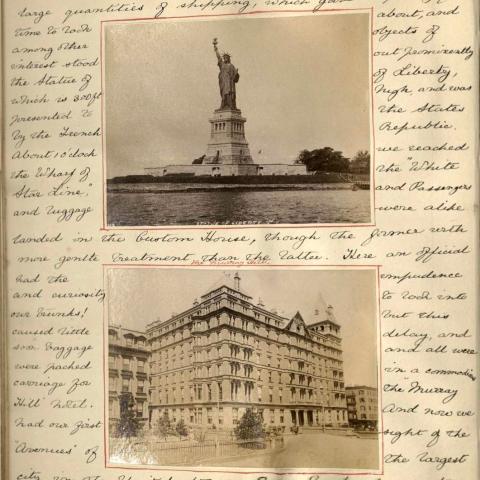 large quantities of shipping, which gave
time to look about, and
among other objects of
interest stood out prominently
the Statue of of Liberty,
which is 300 ft high, and was
presented to the States
by the French Republic.
About 1 o'clock we reached
the Wharf of the "White
Star Line," and Passengers
and luggage were alike
landed in the Custom House, though the former with
more gentle treatment than the latter. Here an official
had the impudence
and curiosity to look into
our trunks! but this
caused little delay, and
soon baggage and all were
were packed in a commodious
carriage for the Murray
Hill Hotel. And now we
had our first sight of the
"Avenues" of the largest
city in the United States
STATUE OF LIBERTY N.Y.
The Murray Hill.